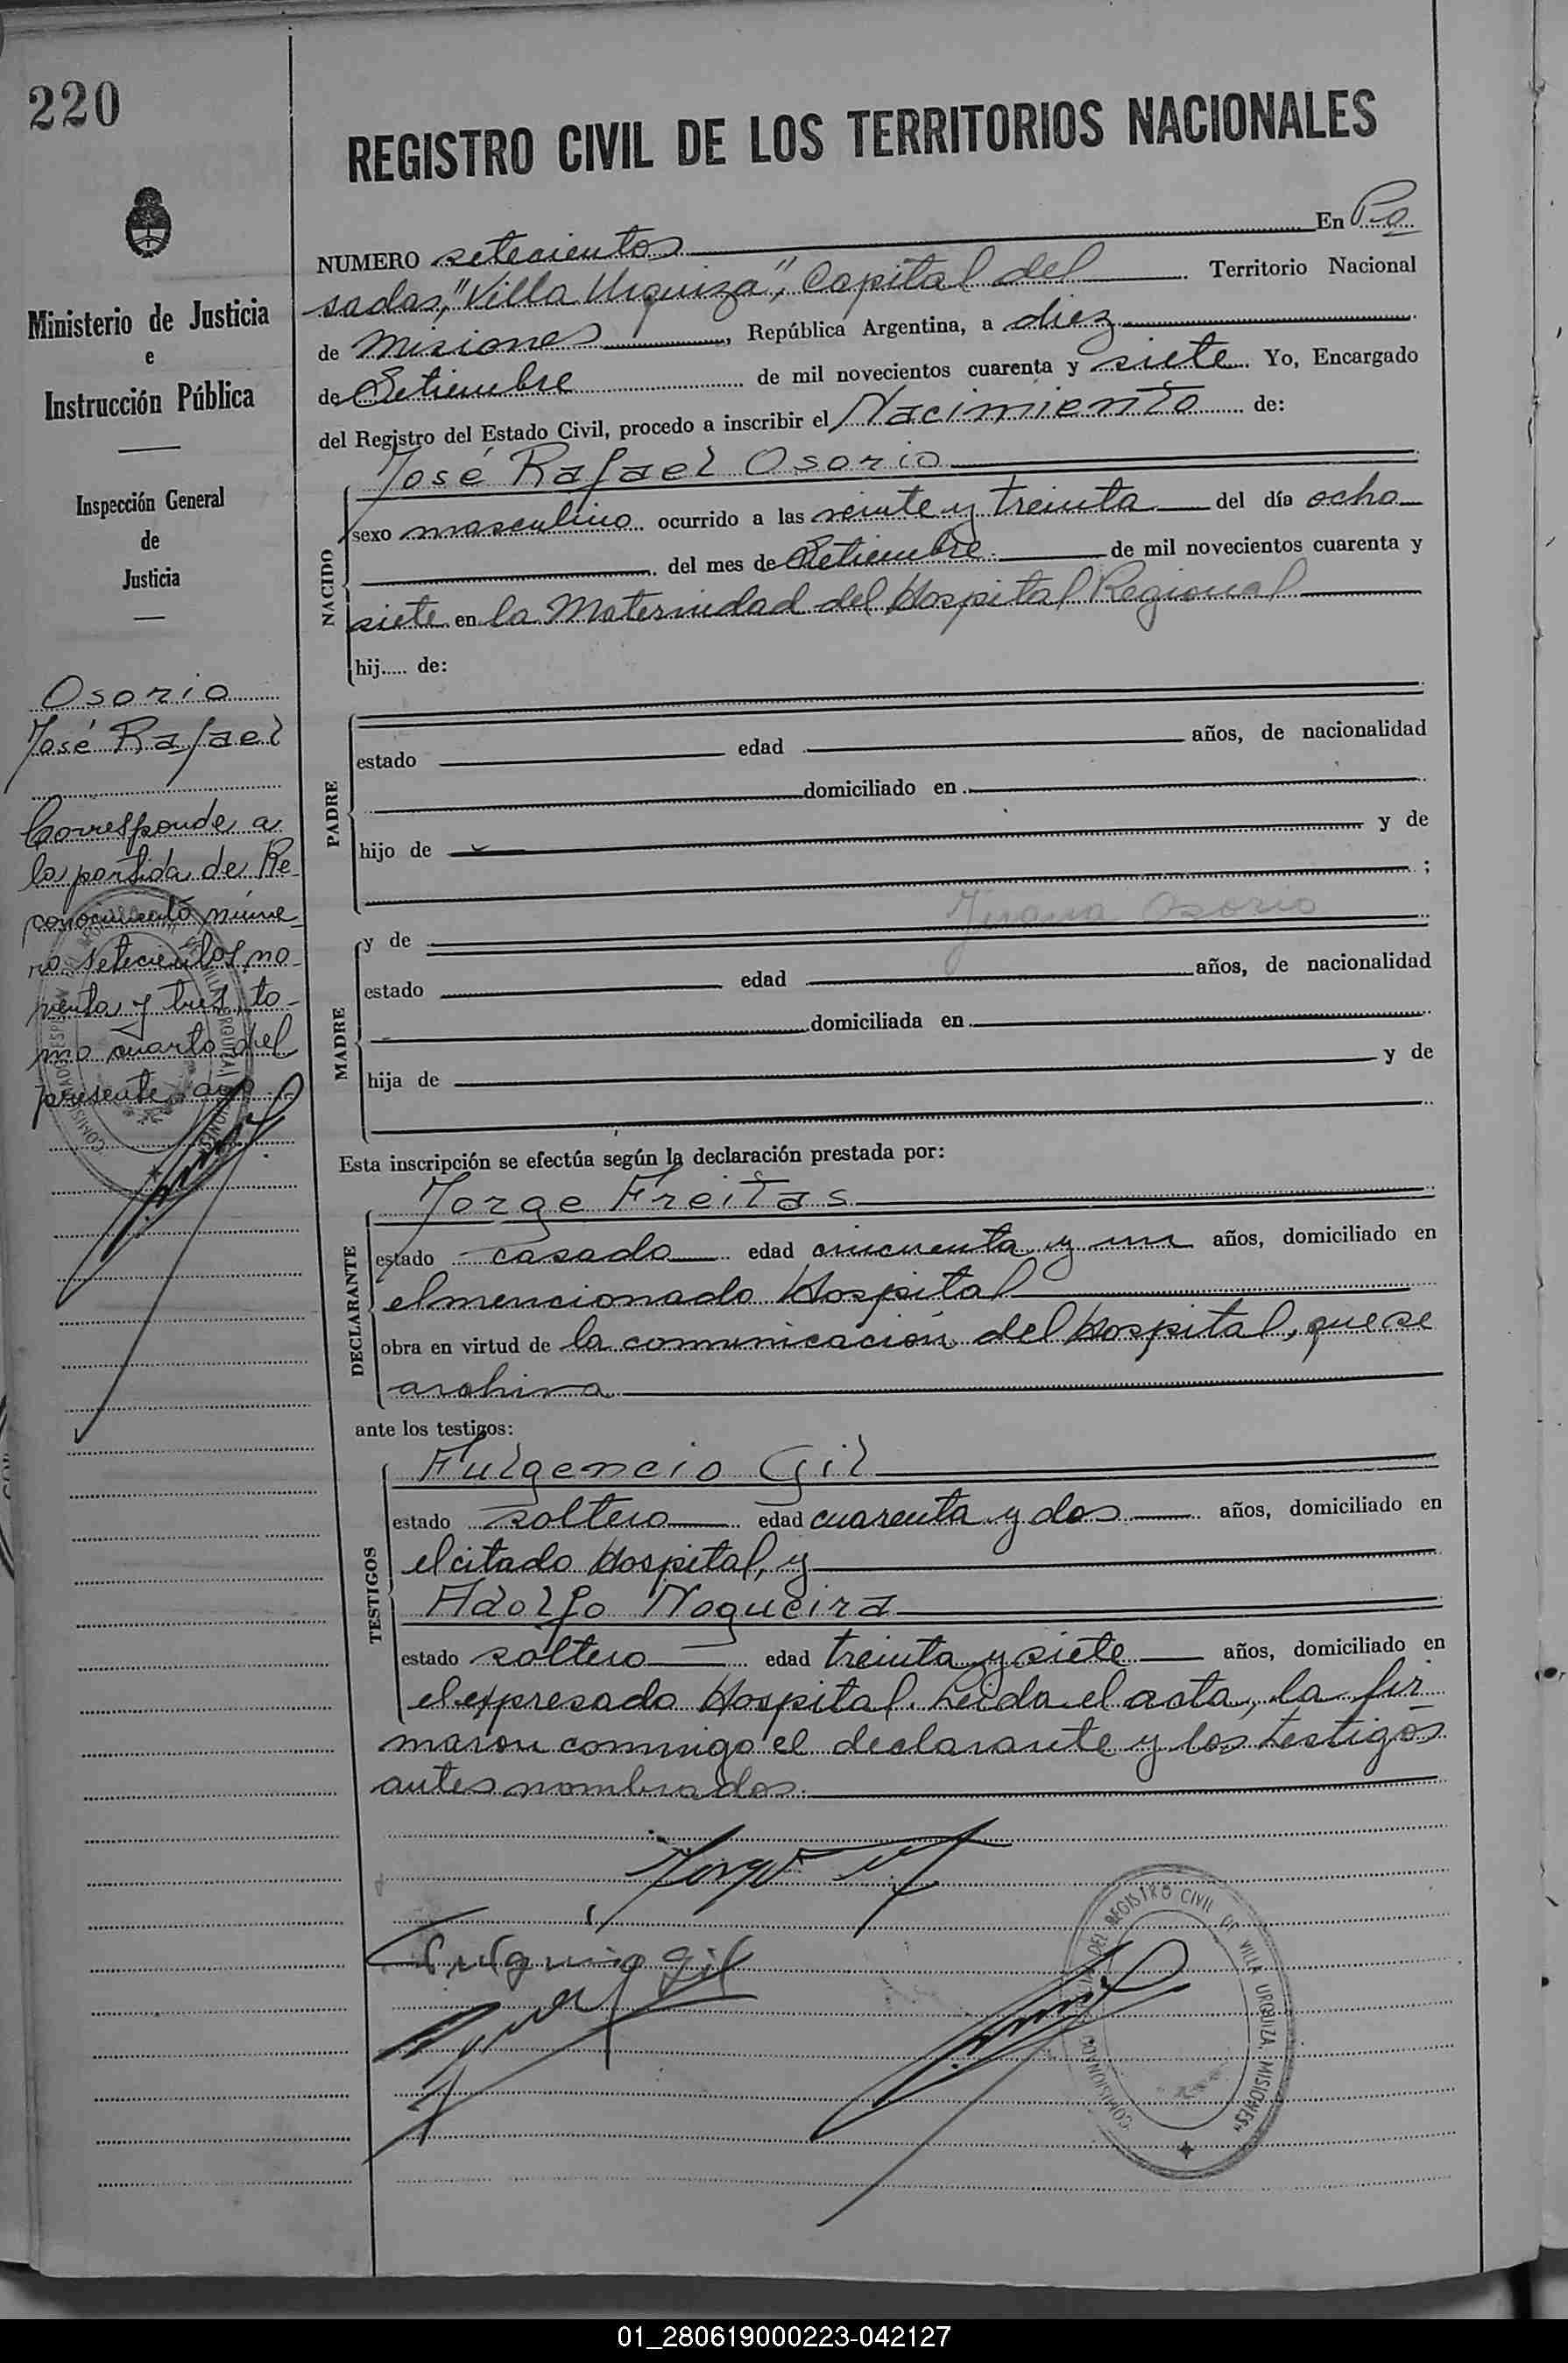 220
REGISTRO CIVIL DE LOS TERRITORIOS NACIONALES
Ministerio de Justicia
e
Instrucción Pública
Inspección General
de
Justicia
Osorio
José Rafael
Corresponde a
la partida de Re-
conocimiento núme-
ro setecientos, no-
venta y tres, to-
mo cuarto del
presente año
NUMERO setecientos En Po
sadas, "Villa Urquiza", Capital del Territorio Nacional
de Misiones, República Argentina, a diez
de Setiembre de mil novecientos cuarenta y siete Yo, Encargado
del Registro del Estado Civil, procedo a inscribir el Nacimiento de:
NACIDO
José Rafael Osorio
sexo masculino ocurrido a las veinte y treinta del día ocho
del mes de Setiembre de mil novecientos cuarenta y
siete en la Maternidad del Hospital Regional
hij..... de:
PADRE
estado edad años, de nacionalidad
domiciliado en
hijo de y de
;
MADRE
Juana Osorio
y de
estado edad años, de nacionalidad
domiciliada en
hija de y de
Esta inscripción se efectúa según la declaración prestada por:
DECLARANTE
Jorge Freitas
estado casado edad cincuenta y un años, domiciliado en
el mencionado Hospital
obra en virtud de la comunicación del Hospital, que se
archiva
ante los testigos:
TESTIGOS
Fulgencio Gil
estado soltero edad cuarenta y dos años, domiciliado en
el citado Hospital, y
Adolfo Nogueira
estado soltero edad treinta y siete años, domiciliado en
el expresado Hospital. Leida el acta, la fir
maron conmigo el declarante y los testigos
antes nombrados.
Jorge
Fulgencio Gil
COMISIONADO DEL REGISTRO CIVIL DE VILLA URQUIZA. MISIONES
01_280619000223-042127